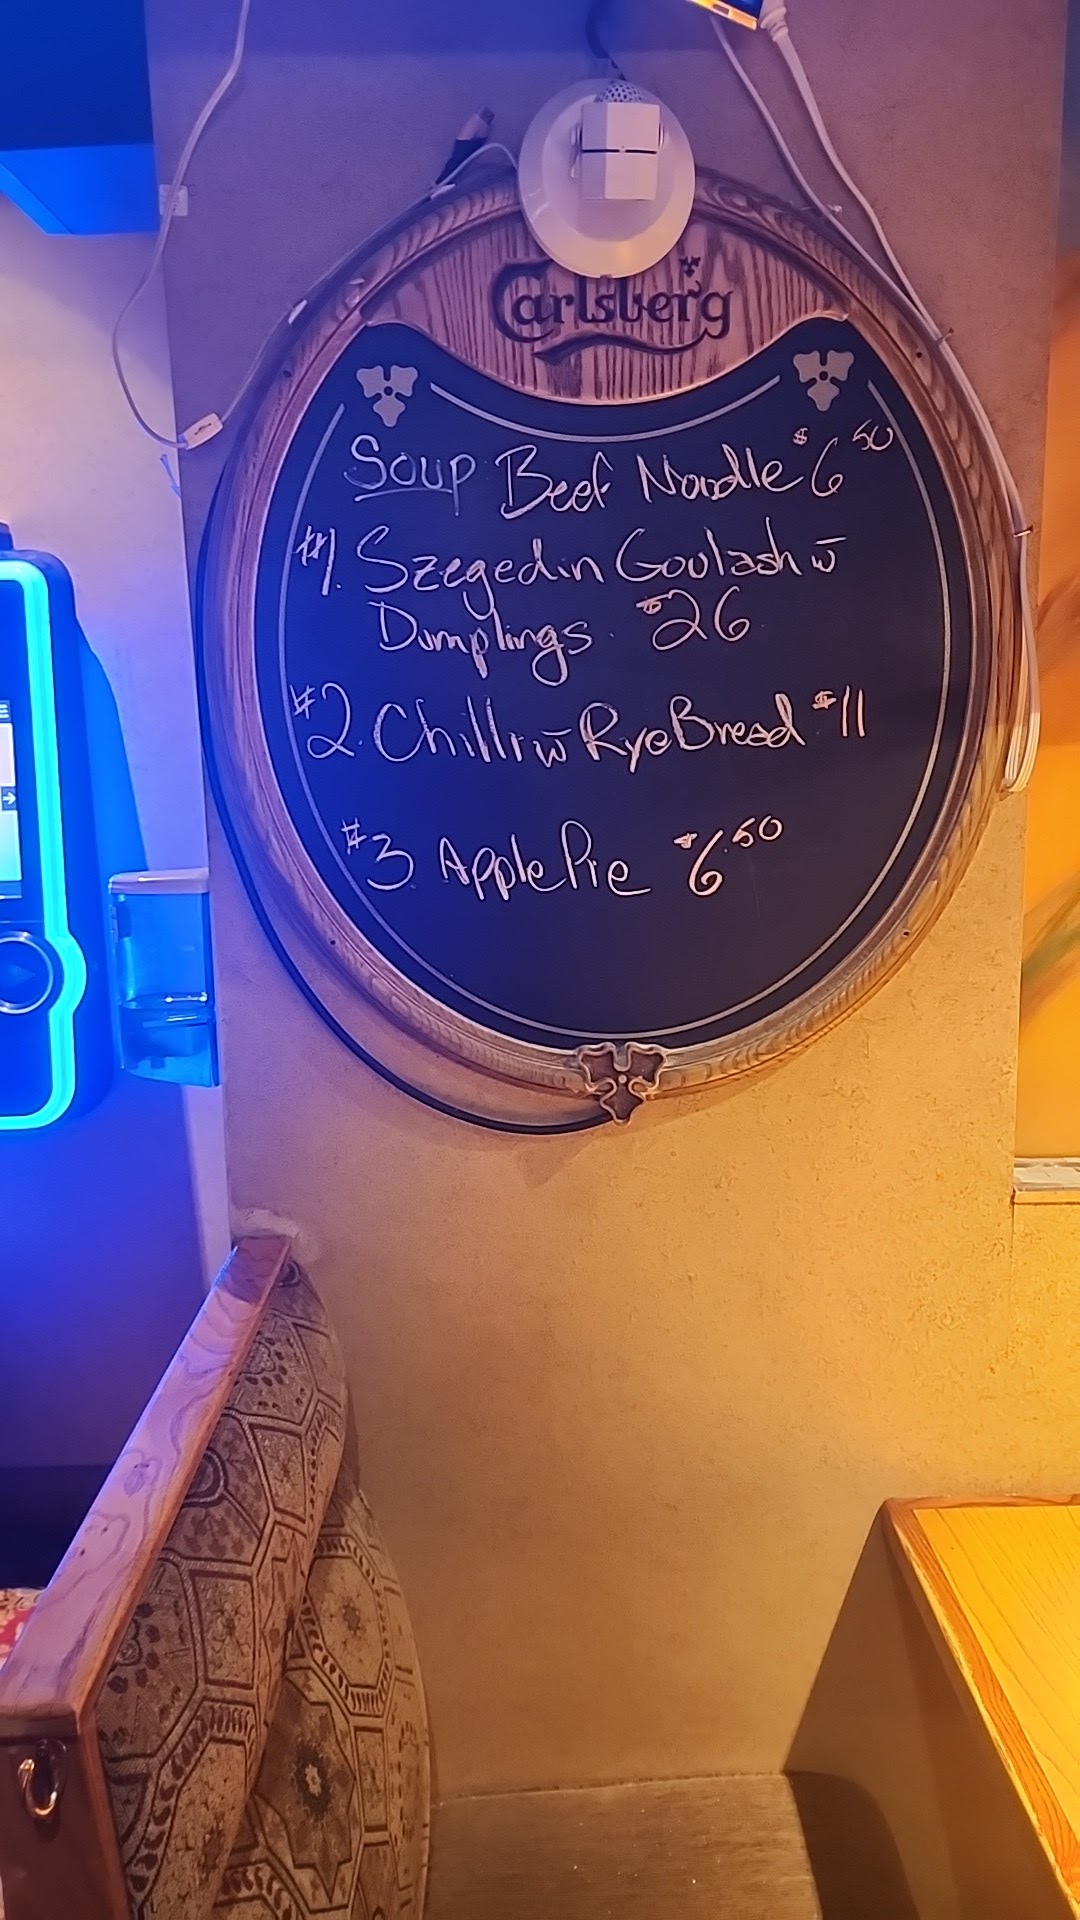 Carlsberg
Soup Beef Noodle $6 50
#1. Szegedin Goulash w
Dumplings. $26
#2. Chilli w Rye Bread $11
#3 Apple Pie $6.50